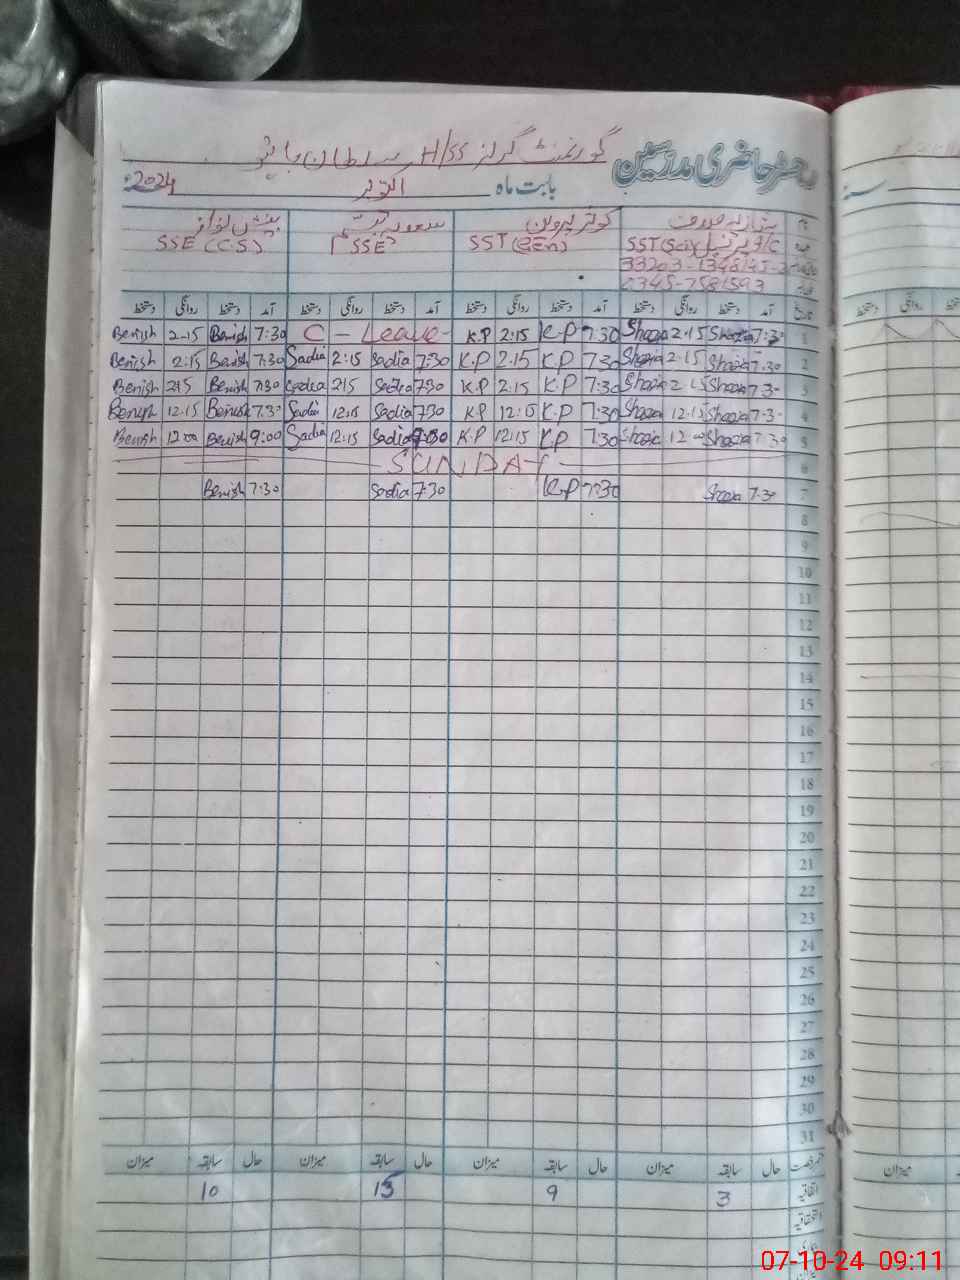 رجسٹر حاضری مدرسین گورنمنٹ گرلز H/SS سلطان
بابت ماہ اکتوبر 2024
کوثر پروین
SST(Sci) SST(GEn) SSE SSE (C.S)
33203-1348145-2
0345-7581593
آمد دستخط روانگی دستخط آمد دستخط روانگی دستخط آمد دستخط روانگی دستخط آمد دستخط روانگی دستخط
1 7:30 Shazia 2:15 Shazia 7:30 K.P 2:15 K.P C - Leave - 7:30 Benish 2-15 Benish
2 7:30 Shazia 2:15 Shazia 7:30 K.P 2.15 K.P 7:30 Sadia 2:15 Sadia 7:30 Benish 2:15 Benish
3 7:30 Shazia 2:15 Shazia 7:30 K.P 2.15 K.P 7:30 Sadia 2:15 Sadia 7:30 Benish 2:15 Benish
4 7:30 Shazia 12:15 Shazia 7:30 K.P 12:15 K.P 7:30 Sadia 12:15 Sadia 7:30 Benish 12.15 Benish
5 7:30 Shazia 12:00 Shazia 7:30 K.P 12:15 K.P 7:30 Sadia 12:15 Sadia 9:00 Benish 12:00 Benish
6 SUNDAY
7 7:30 Shazia 7:30 K.P 7:30 Sadia 7:30 Benish
8
9
10
11
12
13
14
15
16
17
18
19
20
21
22
23
24
25
26
27
28
29
30
31
حال سابقہ میزان حال سابقہ میزان حال سابقہ میزان حال سابقہ میزان
اتفاقیہ 3 9 15 10
استحقاقیہ
07-10-24 09:11